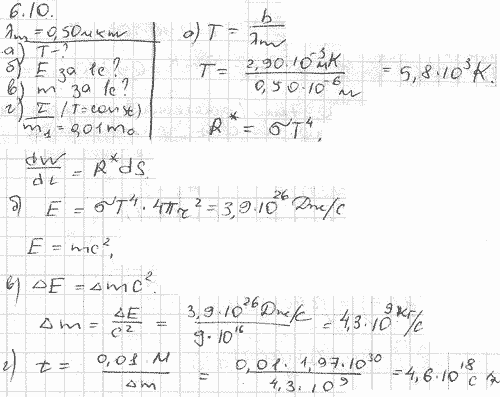 6.10.
λm = 0,50 мкм
а) T - ?
б) E за 1с ?
в) m за 1с ?
г) τ (T = const)
m1 = 0,01 m0
а) T = b / λm
T = 2,90·10^-3 мК / 0,50·10^-6 м = 5,8·10^3 К.
R* = σT^4,
dW/dt = R* dS
б) E = σT^4 · 4πr^2 = 3,9·10^26 Дж/с
E = mc^2,
в) ΔE = Δmc^2.
Δm = ΔE/c^2 = 3,9·10^26 Дж/с / 9·10^16 = 4,3·10^9 кг/с
г) t = 0,01 M / Δm = 0,01 · 1,97·10^30 / 4,3·10^9 = 4,6·10^18 с